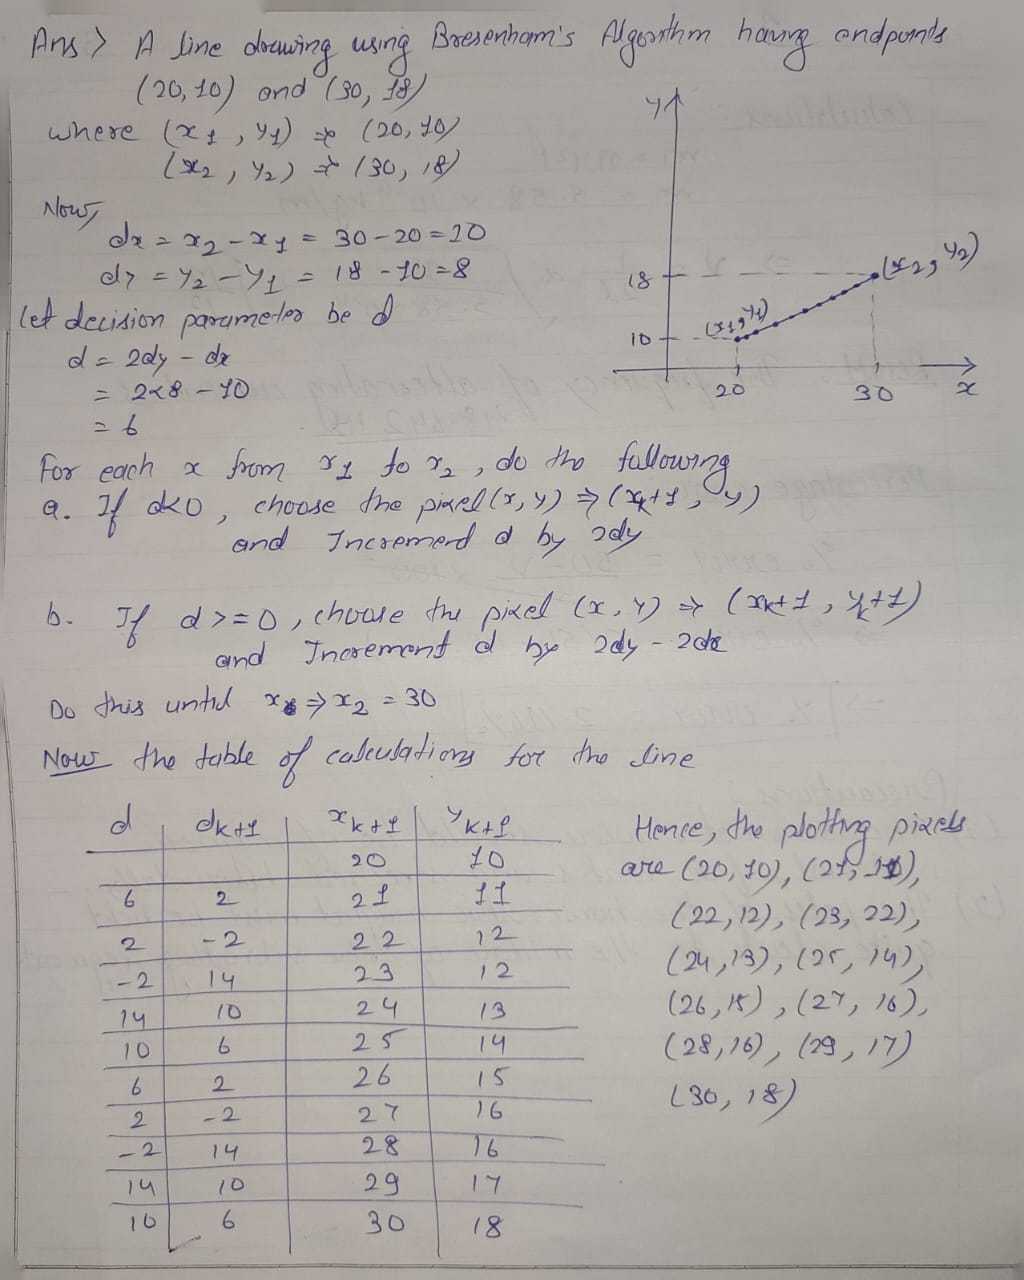 Ans > A line drawing using Bresenham's Algorithm having endpoints
(20,10) and (30, 18)
where (x1, y1) ⇒ (20, 10)
(x2, y2) ⇒ (30, 18)
Now,
dx = x2 - x1 = 30 - 20 = 10
dy = y2 - y1 = 18 - 10 = 8
let decision parameter be d
d = 2dy - dx
= 2x8 - 10
= 6
y
18
10
(x1, y1)
(x2, y2)
20
30
x
For each x from x1 to x2, do the following
a. If d<0, choose the pixel (x, y) ⇒ (xk+1, y)
and Increment d by 2dy
b. If d >= 0, choose the pixel (x, y) ⇒ (xk+1, yk+1)
and Increment d by 2dy - 2dx
Do this until x ⇒ x2 = 30
Now the table of calculations for the line
d dk+1 xk+1 yk+1
20 10
6 2 21 11
2 -2 22 12
-2 14 23 12
14 10 24 13
10 6 25 14
6 2 26 15
2 -2 27 16
-2 14 28 16
14 10 29 17
10 6 30 18
Hence, the plotting pixels
are (20, 10), (21, 11),
(22, 12), (23, 22),
(24, 13), (25, 14),
(26, 15), (27, 16),
(28, 16), (29, 17)
(30, 18)